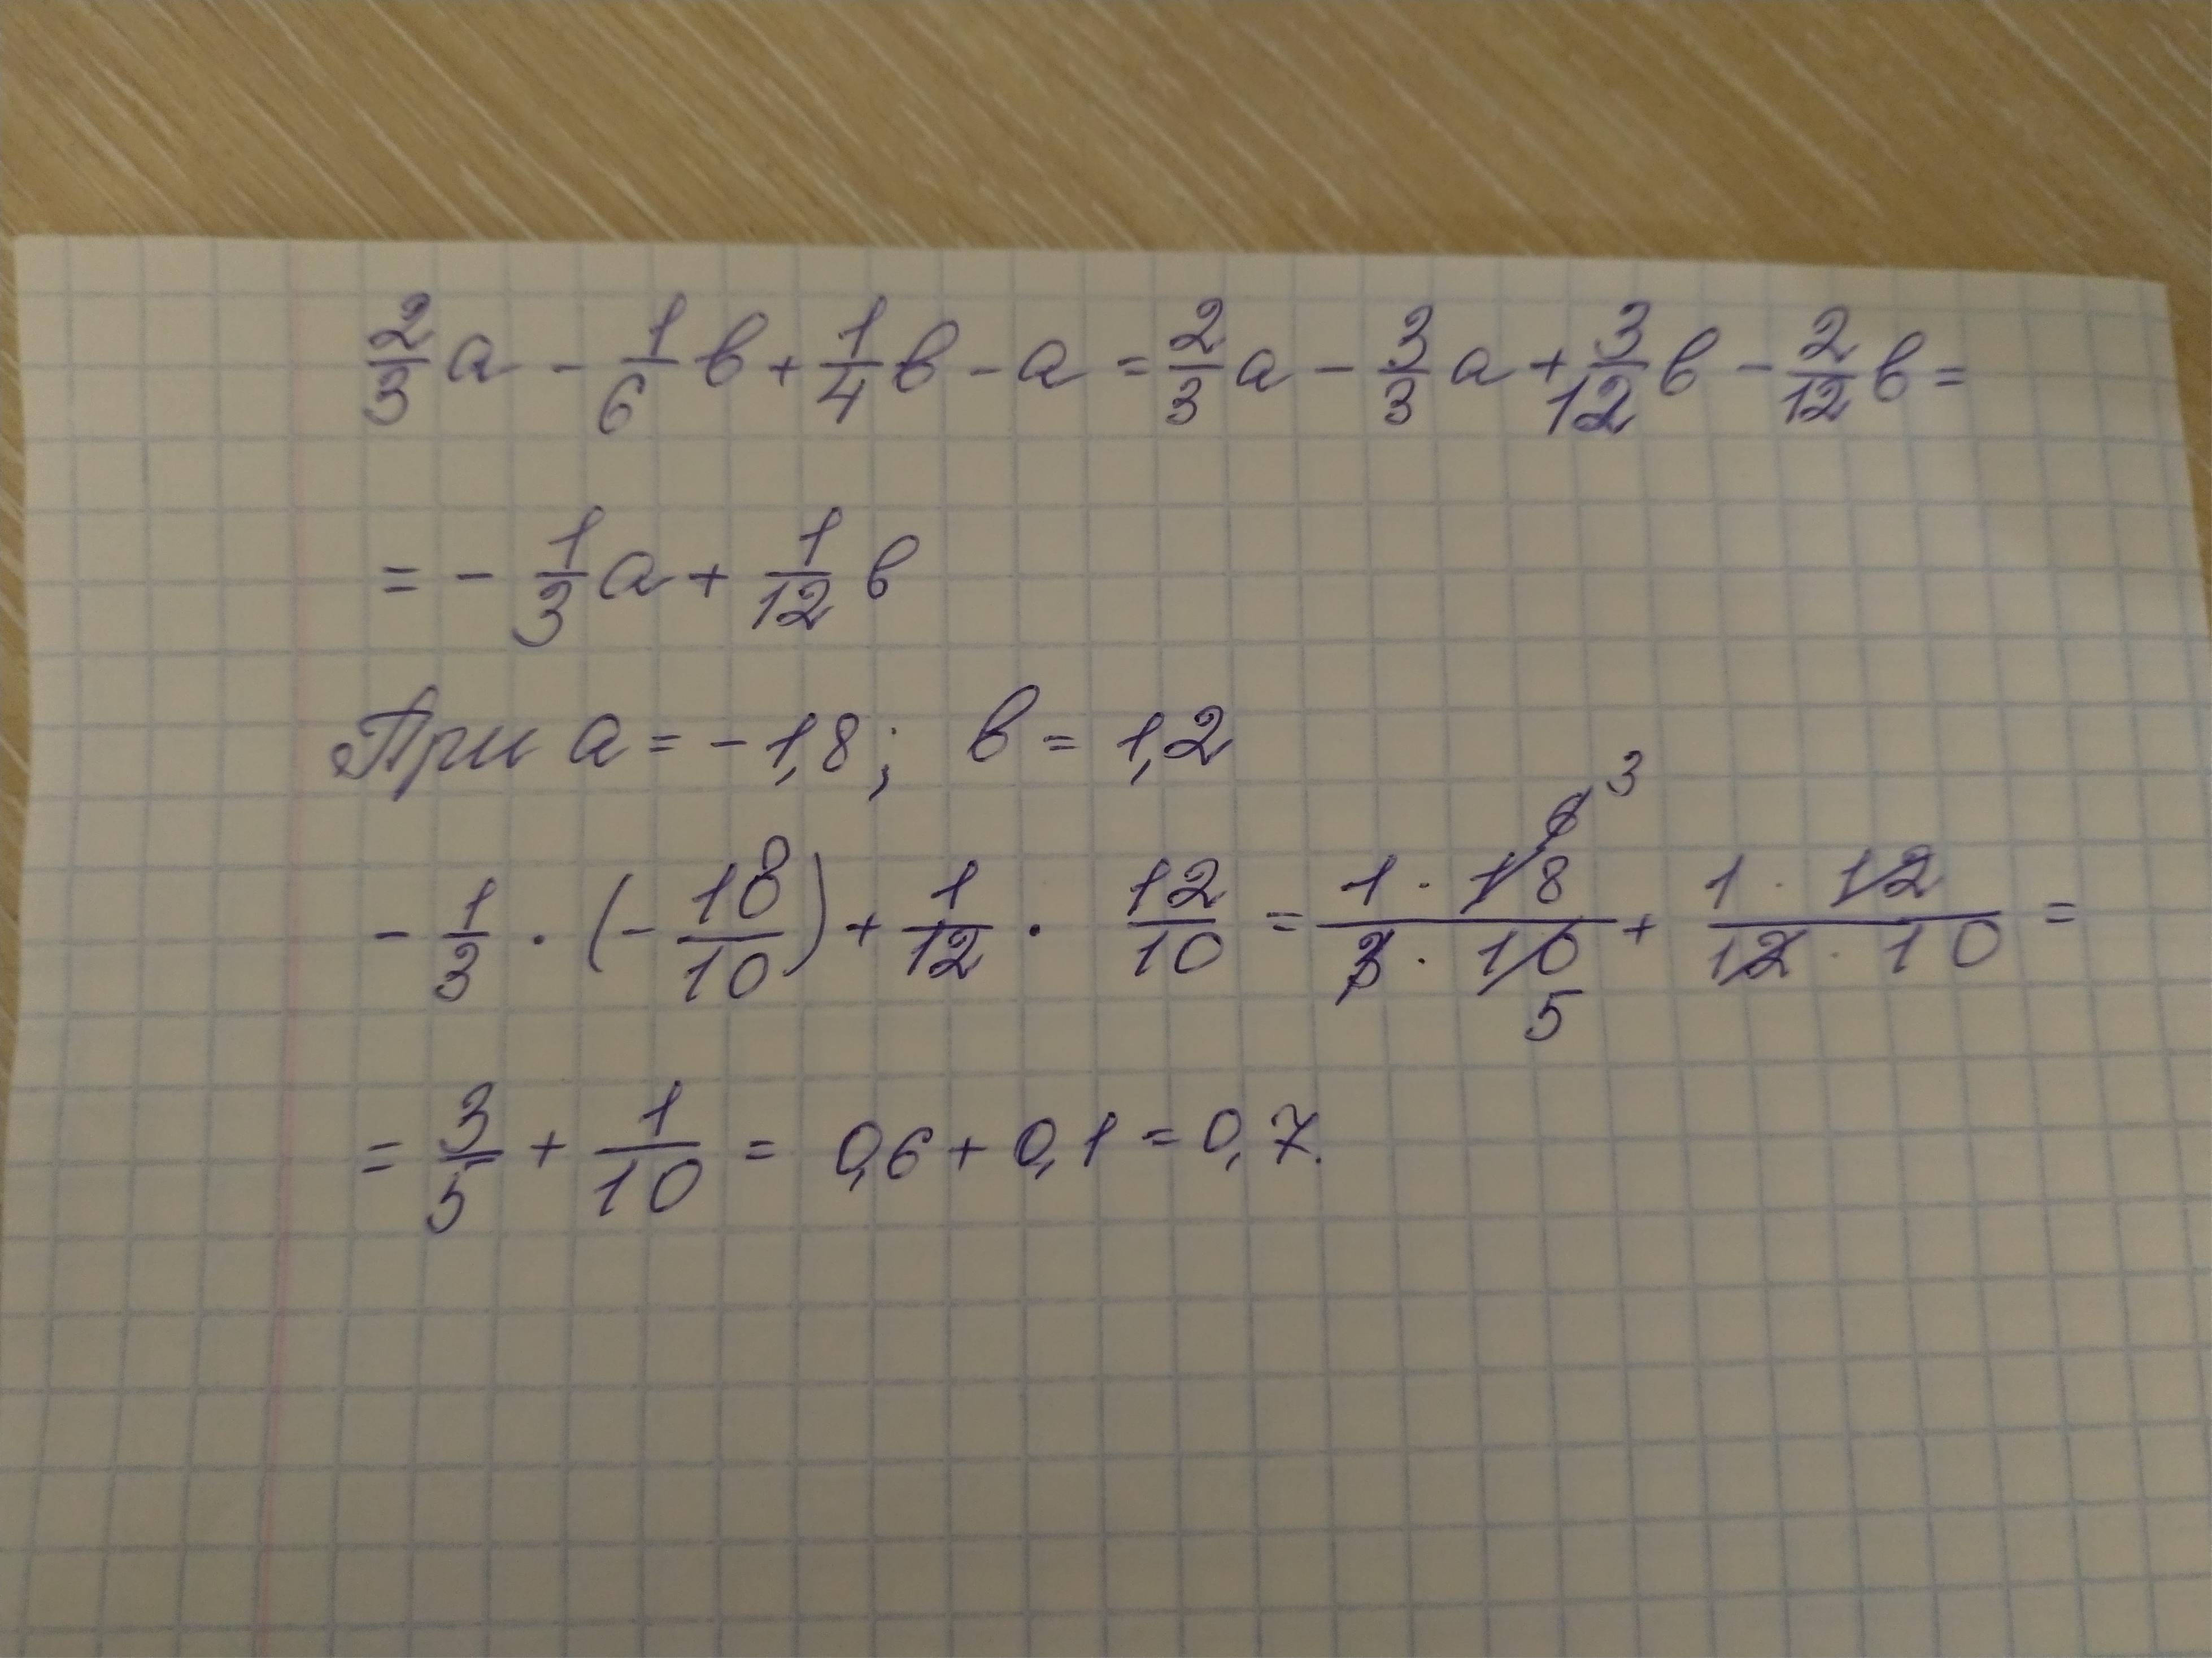 2/3 a - 1/6 в + 1/4 в - a = 2/3 a - 3/3 a + 3/12 в - 2/12 в =
= - 1/3 a + 1/12 в
При a = -1,8; в = 1,2
- 1/3 · (- 18/10) + 1/12 · 12/10 = (1 · 18 6 3)/(3 · 10 5) + (1 · 12)/(12 · 10) =
= 3/5 + 1/10 = 0,6 + 0,1 = 0,7.